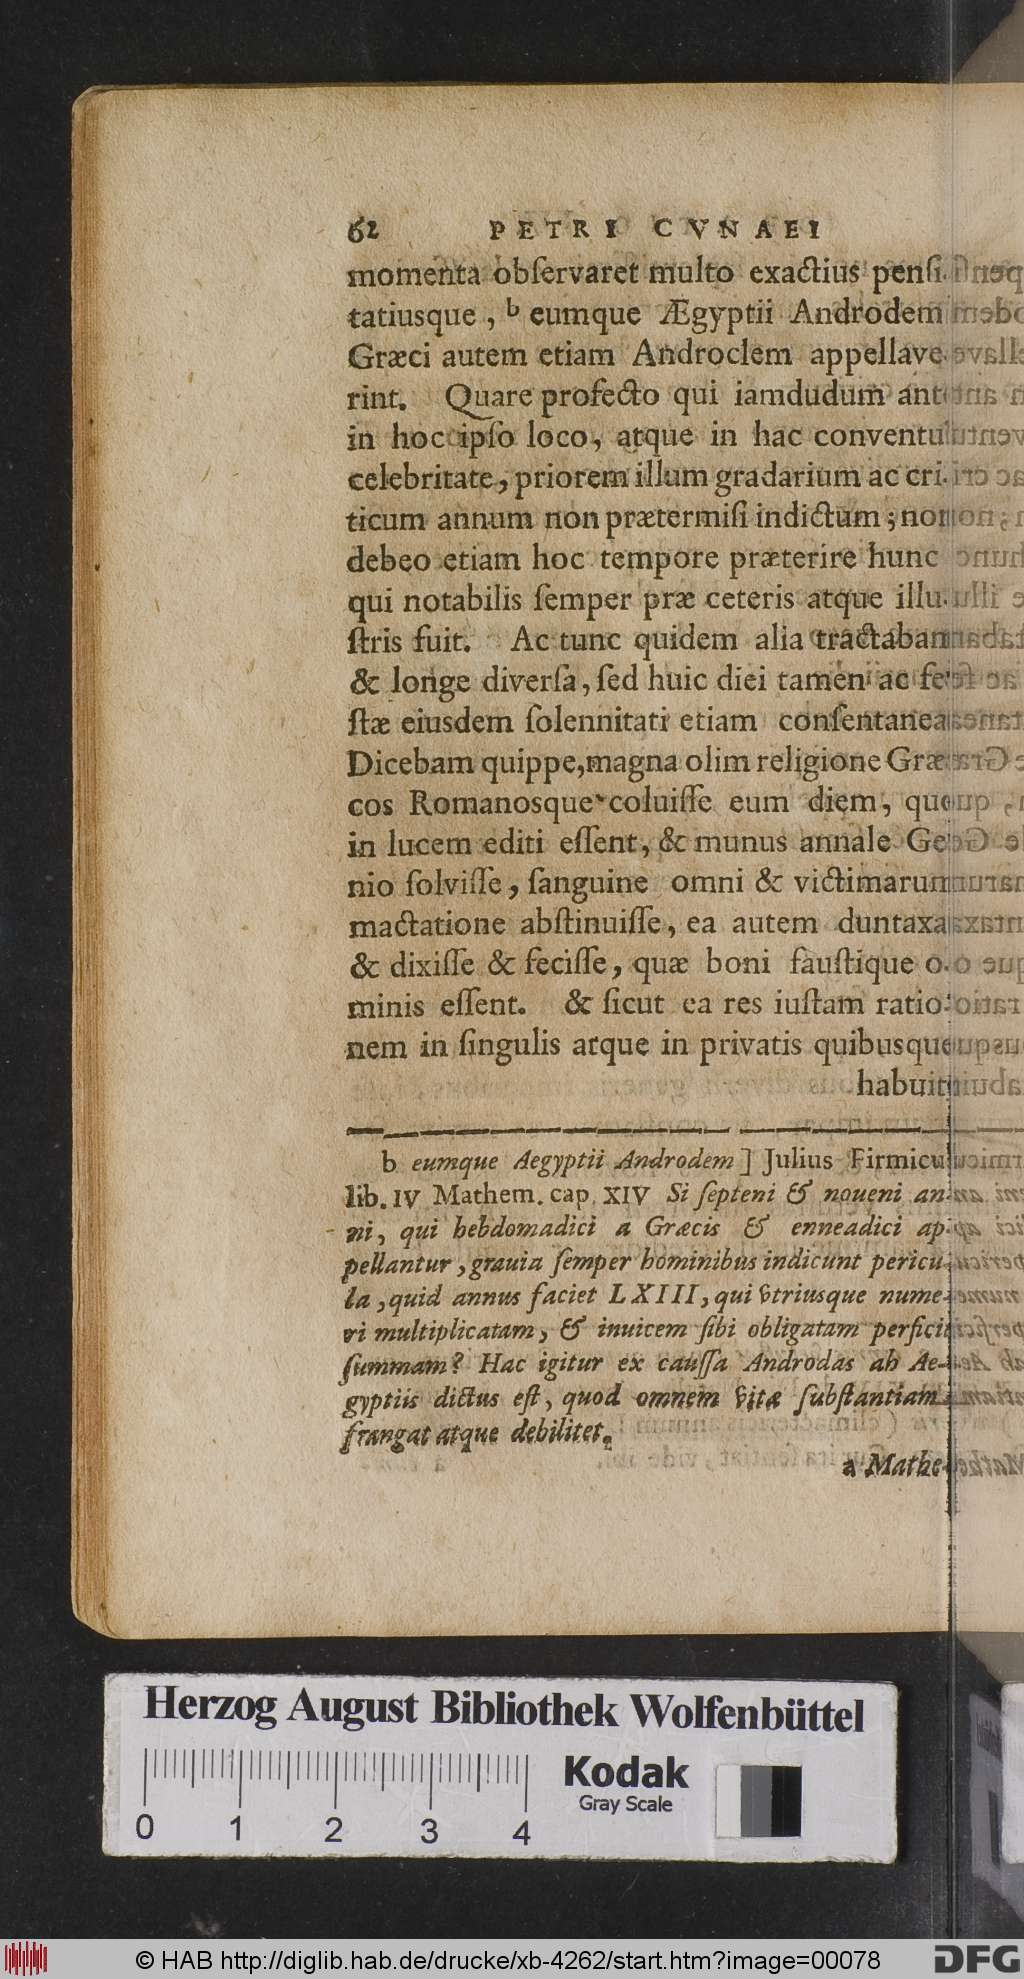 62 PETRI CVNAEI
momenta obſervaret multo exactius penſi-
tatiusque, b eumque Ægyptii Androdem
Græci autem etiam Androclem appellave-
rint. Quare profecto qui iamdudum ante
in hoc ipſo loco, atque in hac conventu
celebritate, priorem illum gradarium ac cri-
ticum annum non prætermiſi indictum; non
debeo etiam hoc tempore præterire hunc
qui notabilis ſemper præ ceteris atque illu-
ſtris fuit. Ac tunc quidem alia tractabam
& longe diverſa, ſed huic diei tamen ac fe-
ſtæ eiusdem ſolennitati etiam conſentanea
Dicebam quippe, magna olim religione Græ-
cos Romanosque coluiſſe eum diem, quo
in lucem editi eſſent, & munus annale Ge-
nio ſolviſſe, ſanguine omni & victimarum
mactatione abſtinuiſſe, ea autem duntaxa
& dixiſſe & feciſſe, quæ boni fauſtique o-
minis eſſent. & ſicut ea res iuſtam ratio-
nem in ſingulis atque in privatis quibusque
habuit
b eumque Aegyptii Androdem] Julius Firmicu
lib. IV Mathem. cap. XIV Si ſepteni & noueni an-
ni, qui hebdomadici a Græcis & enneadici ap-
pellantur, grauia ſemper hominibus indicunt pericu-
la, quid annus faciet LXIII, qui vtriusque nume-
ri multiplicatam, & inuicem ſibi obligatam perficit
ſummam? Hac igitur ex cauſſa Androdas ab Ae-
gyptiis dictus eſt, quod omnem vitæ ſubſtantiam
frangat atque debilitet.
a Mathe-
Herzog August Bibliothek Wolfenbüttel
Kodak
Gray Scale
0 1 2 3 4
© HAB http://diglib.hab.de/drucke/xb-4262/start.htm?image=00078
DFG